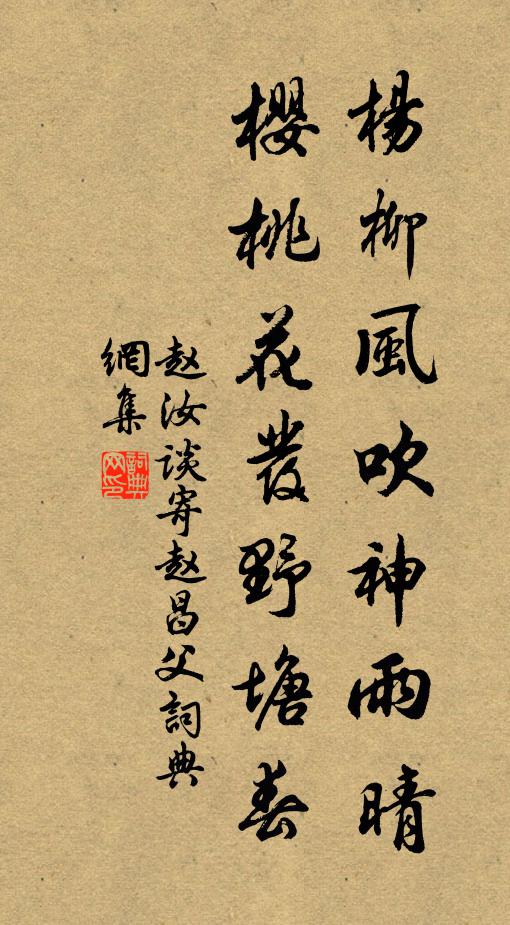 楊柳風吹神雨晴
櫻桃花發野塘春
赵汝谈寄赵昌父詞典
網集
詞典網印